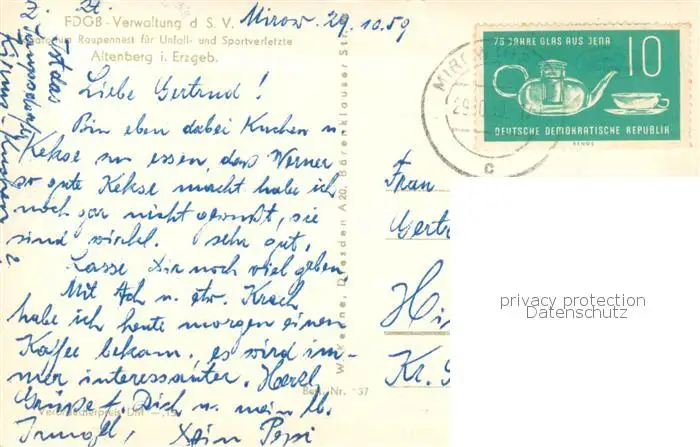 z. Zt. Mirow. 29.10.59
FDGB-Verwaltung d. S. V.
Sanatorium Raupennest für Unfall- und Sportverletzte
Altenberg i. Erzgeb.
Liebe Gertrud!
Bin eben dabei Kuchen u.
Kekse zu essen, dass Werner
so gute Kekse macht habe ich
noch gar nicht gewußt, sie
sind wirkl. sehr gut.
Lasse Dir noch viel geben
Mit Ach u. Krach
habe ich heute morgen einen
Kaffee bekom., es wird im-
mer interessanter. Herzl.
Grüße f. Dich u. mein lb.
Dein Pepi
Ist das
Verbraucherpreis DM -,15
Best. Nr. 137
W. Kenne, Dresden A20, Bärenklauser Str.
75 JAHRE GLAS AUS JENA 10
DEUTSCHE DEMOKRATISCHE REPUBLIK
BENGS
MIROW
29.10.
c
Frau
Gertr
Hi
Kr. G
privacy protection
Datenschutz